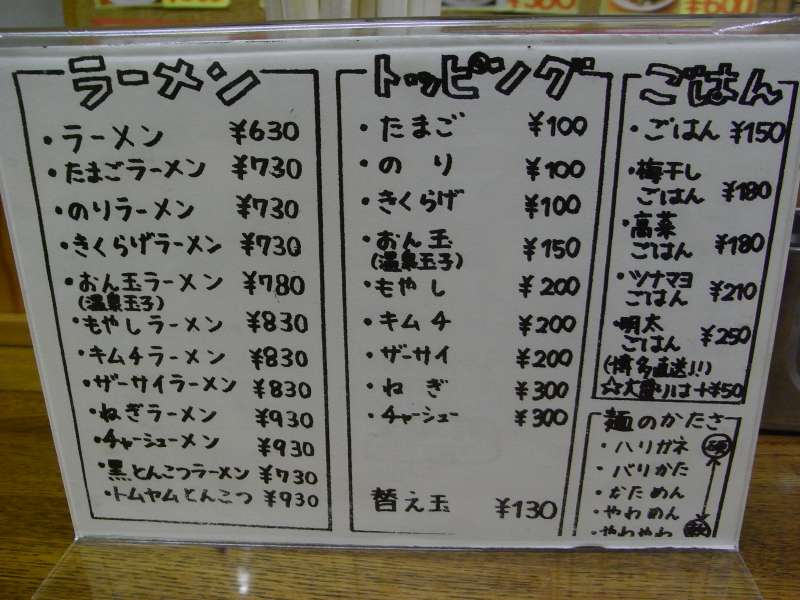 ラーメン
・ラーメン ¥630
・たまごラーメン ¥730
・のりラーメン ¥730
・きくらげラーメン ¥730
・おん玉ラーメン ¥780
(温泉玉子)
・もやしラーメン ¥830
・キムチラーメン ¥830
・ザーサイラーメン ¥830
・ねぎラーメン ¥930
・チャーシューメン ¥930
・黒とんこつラーメン ¥730
・トムヤムとんこつ ¥930
トッピング
・たまご ¥100
・のり ¥100
・きくらげ ¥100
・おん玉 ¥150
(温泉玉子)
・もやし ¥200
・キムチ ¥200
・ザーサイ ¥200
・ねぎ ¥300
・チャーシュー ¥300
替え玉 ¥130
ごはん
・ごはん ¥150
・梅干し
ごはん ¥180
・高菜
ごはん ¥180
・ツナマヨ
ごはん ¥210
・明太
ごはん ¥250
(博多直送!!)
☆大盛りは+¥50
麺のかたさ
・ハリガネ 硬
・バリかた
・かためん
・やわめん
・やわやわ 軟
¥600